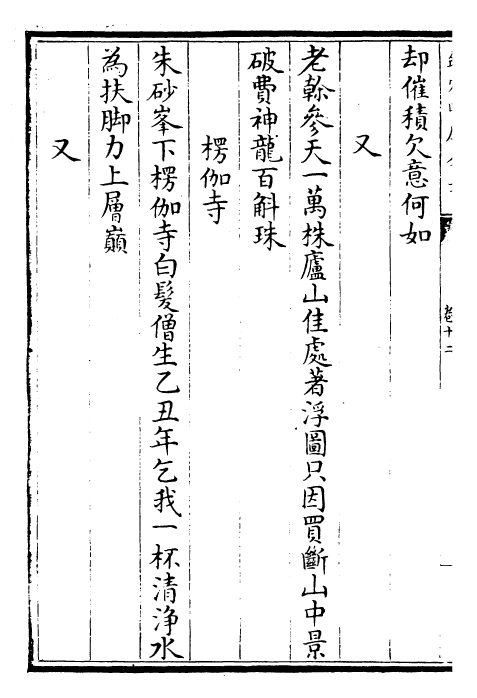 却催積欠意何如
又
老榦參天一萬株廬山佳處著浮圖只因買斷山中景
破費神龍百斛珠
楞伽寺
朱砂峯下楞伽寺白髮僧生乙丑年乞我一杯清淨水
為扶脚力上層巔
又
卷十二